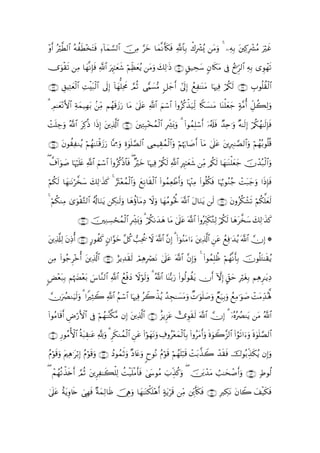 غَيْرَ مُشْرِكِينَ بِهِۦ ۚ وَمَن يُشْرِكْ بِٱللَّهِ فَكَأَنَّمَا خَرَّ مِنَ ٱلسَّمَآءِ فَتَخْطَفُهُ ٱلطَّيْرُ أَوْ
تَهْوِى بِهِ ٱلرِّيحُ فِى مَكَانٍ سَحِيقٍ ذَٰلِكَ وَمَن يُعَظِّمْ شَعَـٰٓئِرَ ٱللَّهِ فَإِنَّهَا مِن تَقْوَى
ٱلْقُلُوبِ لَكُمْ فِيهَا مَنَـٰفِعُ إِلَىٰٓ أَجَلٍ مُّسَمًّى ثُمَّ مَحِلُّهَآ إِلَى ٱلْبَيْتِ ٱلْعَتِيقِ
وَلِكُلِّ أُمَّةٍ جَعَلْنَا مَنسَكًا لِّيَذْكُرُوا۟ ٱسْمَ ٱللَّهِ عَلَىٰ مَا رَزَقَهُم مِّنۢ بَهِيمَةِ ٱلْأَنْعَـٰمِ ۗ
فَإِلَـٰهُكُمْ إِلَـٰهٌ وَٰحِدٌ فَلَهُۥٓ أَسْلِمُوا۟ ۗ وَبَشِّرِ ٱلْمُخْبِتِينَ ٱلَّذِينَ إِذَا ذُكِرَ ٱللَّهُ وَجِلَتْ
قُلُوبُهُمْ وَٱلصَّـٰبِرِينَ عَلَىٰ مَآ أَصَابَهُمْ وَٱلْمُقِيمِى ٱلصَّلَوٰةِ وَمِمَّا رَزَقْنَـٰهُمْ يُنفِقُونَ
وَٱلْبُدْنَ جَعَلْنَـٰهَا لَكُم مِّن شَعَـٰٓئِرِ ٱللَّهِ لَكُمْ فِيهَا خَيْرٌ ۖ فَٱذْكُرُوا۟ ٱسْمَ ٱللَّهِ عَلَيْهَا صَوَآفَّ ۖ
فَإِذَا وَجَبَتْ جُنُوبُهَا فَكُلُوا۟ مِنْهَا وَأَطْعِمُوا۟ ٱلْقَانِعَ وَٱلْمُعْتَرَّ ۚ كَذَٰلِكَ سَخَّرْنَـٰهَا لَكُمْ
لَعَلَّكُمْ تَشْكُرُونَ لَن يَنَالَ ٱللَّهَ لُحُومُهَا وَلَا دِمَآؤُهَا وَلَـٰكِن يَنَالُهُ ٱلتَّقْوَىٰ مِنكُمْ ۚ
كَذَٰلِكَ سَخَّرَهَا لَكُمْ لِتُكَبِّرُوا۟ ٱللَّهَ عَلَىٰ مَا هَدَىٰكُمْ ۗ وَبَشِّرِ ٱلْمُحْسِنِينَ
۞ إِنَّ ٱللَّهَ يُدَٰفِعُ عَنِ ٱلَّذِينَ ءَامَنُوٓا۟ ۗ إِنَّ ٱللَّهَ لَا يُحِبُّ كُلَّ خَوَّانٍ كَفُورٍ أُذِنَ لِلَّذِينَ
يُقَـٰتَلُونَ بِأَنَّهُمْ ظُلِمُوا۟ ۚ وَإِنَّ ٱللَّهَ عَلَىٰ نَصْرِهِمْ لَقَدِيرٌ ٱلَّذِينَ أُخْرِجُوا۟ مِن
دِيَـٰرِهِم بِغَيْرِ حَقٍّ إِلَّآ أَن يَقُولُوا۟ رَبُّنَا ٱللَّهُ ۗ وَلَوْلَا دَفْعُ ٱللَّهِ ٱلنَّاسَ بَعْضَهُم بِبَعْضٍ
لَّهُدِّمَتْ صَوَٰمِعُ وَبِيَعٌ وَصَلَوَٰتٌ وَمَسَـٰجِدُ يُذْكَرُ فِيهَا ٱسْمُ ٱللَّهِ كَثِيرًا ۗ وَلَيَنصُرَنَّ
ٱللَّهُ مَن يَنصُرُهُۥٓ ۗ إِنَّ ٱللَّهَ لَقَوِىٌّ عَزِيزٌ ٱلَّذِينَ إِن مَّكَّنَّـٰهُمْ فِى ٱلْأَرْضِ أَقَامُوا۟
ٱلصَّلَوٰةَ وَءَاتَوُا۟ ٱلزَّكَوٰةَ وَأَمَرُوا۟ بِٱلْمَعْرُوفِ وَنَهَوْا۟ عَنِ ٱلْمُنكَرِ ۗ وَلِلَّهِ عَـٰقِبَةُ ٱلْأُمُورِ
وَإِن يُكَذِّبُوكَ فَقَدْ كَذَّبَتْ قَبْلَهُمْ قَوْمُ نُوحٍ وَعَادٌ وَثَمُودُ وَقَوْمُ إِبْرَٰهِيمَ وَقَوْمُ
لُوطٍ وَأَصْحَـٰبُ مَدْيَنَ ۖ وَكُذِّبَ مُوسَىٰ فَأَمْلَيْتُ لِلْكَـٰفِرِينَ ثُمَّ أَخَذْتُهُمْ ۖ
فَكَيْفَ كَانَ نَكِيرِ فَكَأَيِّن مِّن قَرْيَةٍ أَهْلَكْنَـٰهَا وَهِىَ ظَالِمَةٌ فَهِىَ خَاوِيَةٌ عَلَىٰ